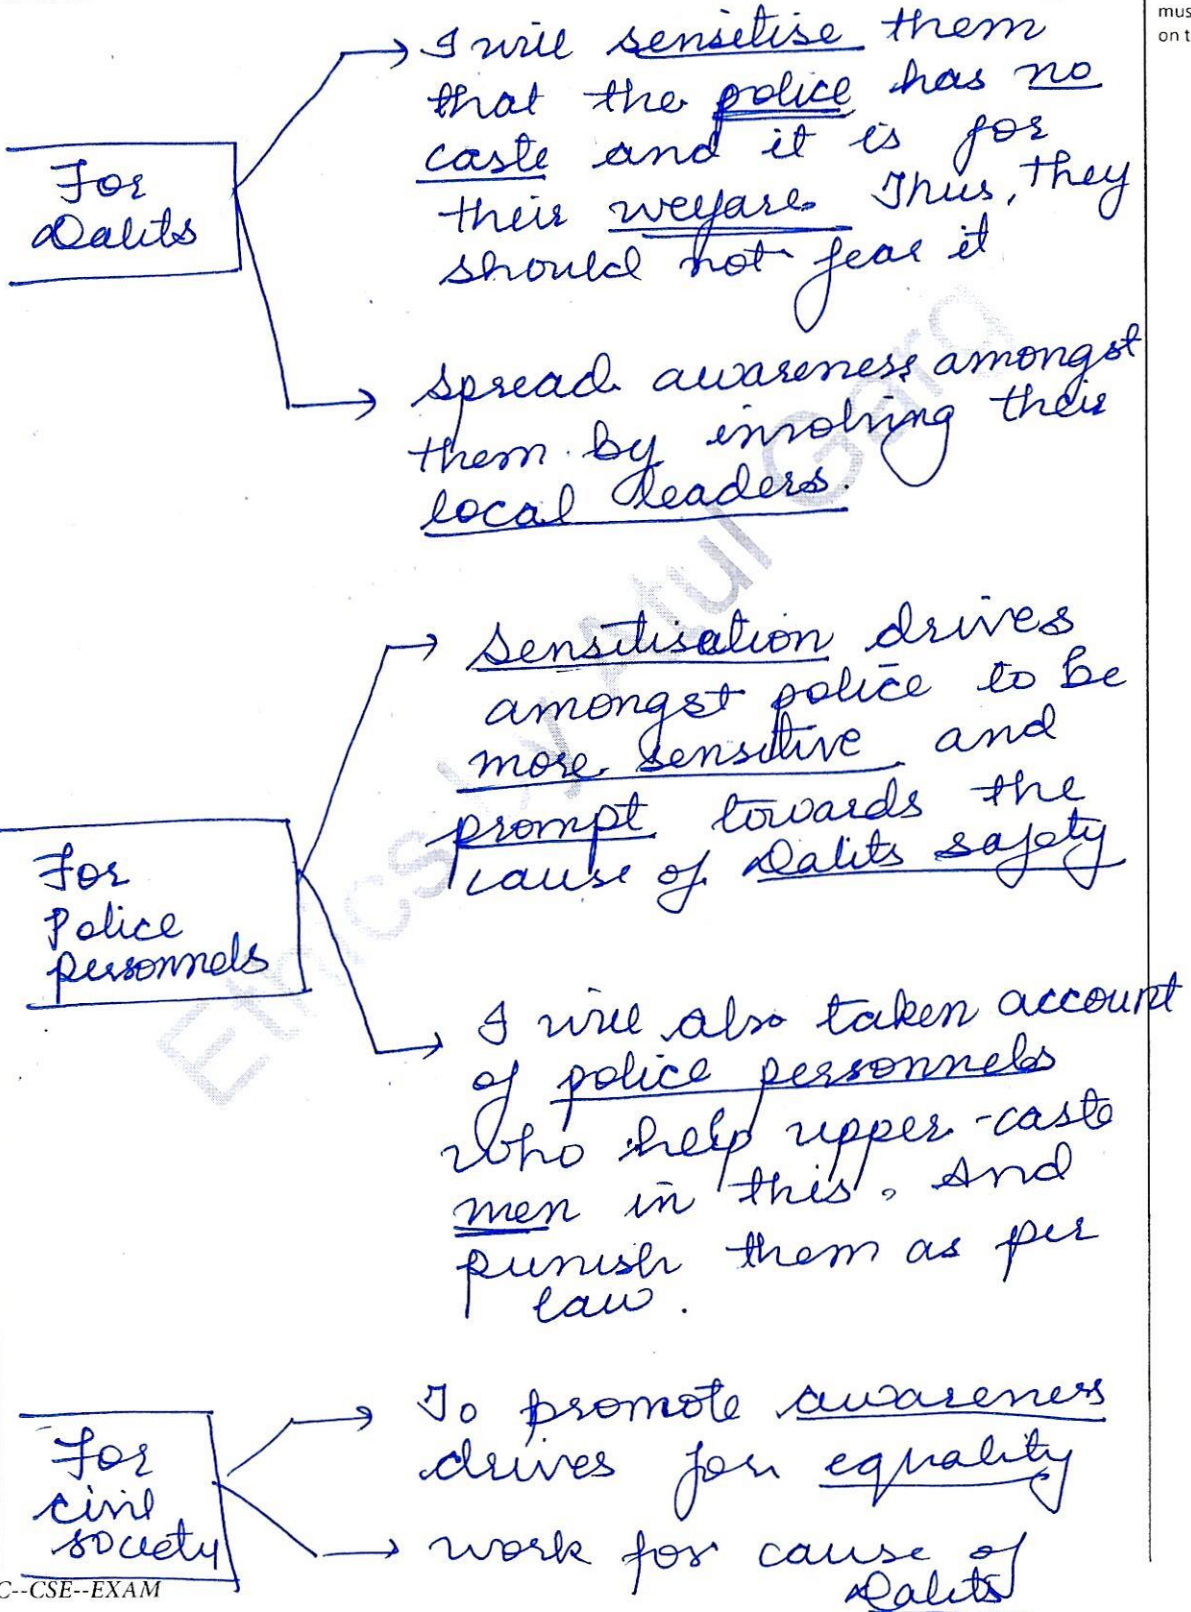 mus
on t
For
Dalits
→ I will sensitise them
that the police has no
caste and it is for
their welfare. Thus, they
should not fear it
→ Spread awareness amongst
them by involving their
local leaders.
For
Police
personnels
→ Sensitisation drives
amongst police to be
more sensitive and
prompt towards the
cause of Dalits safety
→ I will also taken account
of police personnels
who help upper-caste
men in this. And
punish them as per
law.
For
civil
society
→ To promote awareness
drives for equality
→ work for cause of
Dalits
C--CSE--EXAM
Ethics by Atul Garg